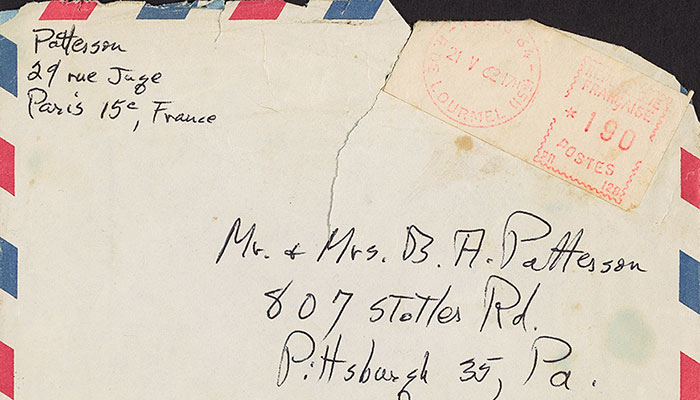 Patterson
29 rue Juge
Paris 15e, France
21 V 62
LOURMEL (15e)
REPUBLIQUE
FRANÇAISE
*190
POSTES
Mr. & Mrs. B. A. Patterson
807 Stotler Rd.
Pittsburgh 35, Pa.